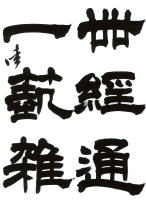 世經通
一藝雜